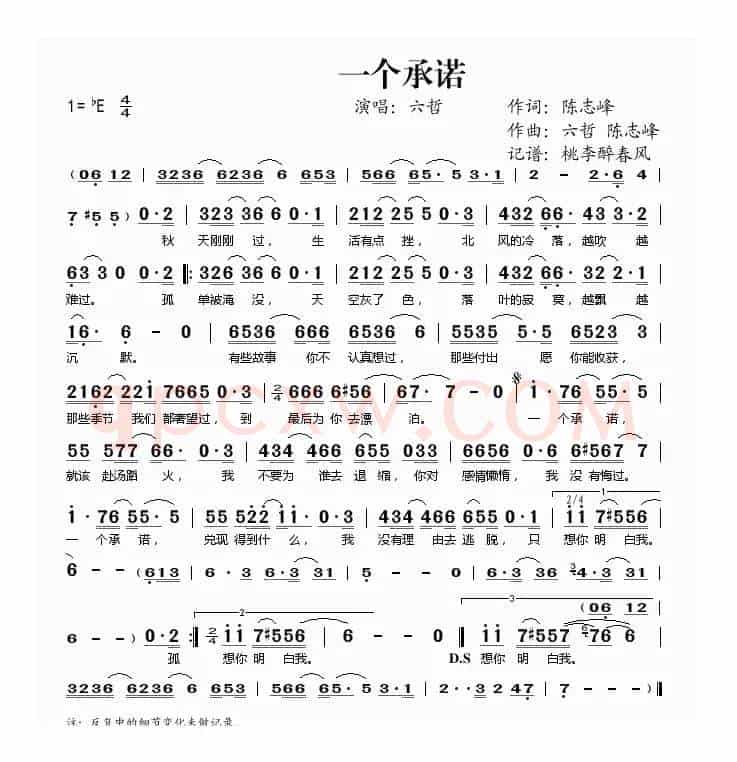 一个承诺
1= ♭E 4/4 演唱：六哲 作词：陈志峰
作曲：六哲 陈志峰
记谱：桃李醉春风
(06 12 | 3236 6236 6 653 | 566 65· 5 3·1 | 2 - 2·6 4
7 #5 5) 0·2 | 323 36 6 0·1 | 212 25 5 0·3 | 432 66· 03 3·2
秋 天刚刚 过， 生 活有点 挫， 北 风的冷 落，越吹 越
63 3 0 0·2 ‖: 326 36 6 0·1 | 212 25 5 0·3 | 432 66· 03 3·2
难过。 孤 单被淹 没， 天 空灰了 色， 落 叶的寂 寞，越飘 越
16· 6 - 0 | 6536 666 6536 6 | 5535 5·5 6523 3
沉 默。 有些故事 你不 认真想过， 那些付出 愿 你能收获，
2162 221 7665 0·3 | 2/4 666 6#56 | 67· 7 - 0 | 1·76 55·5
那些季节 我们 都奢望过， 到 最后为 你 去漂 泊。 一个承 诺，
55 577 66· 0·3 | 434 466 655 033 | 6656 0·6 6#567 7
就该 赴汤蹈 火， 我 不要为 谁去 退 缩，你对 感情懒惰， 我 没 有悔过。
1·76 55·5 | 55 522 11· 0·3 | 434 466 655 0·1 | 2/4 11 7#556 1
一 个承 诺， 兑现 得到什 么， 我 没有理 由去 逃 脱， 只 想你 明 白我。
6 - - (613 | 6·3 6·3 31 | 5 - 0 0 | 6·36 36 4·3 31
2
3
(06 12
6 - -) 0·2 :‖ 2/4 11 7#556 | 6 - - 0 ‖ 11 7#557 76 6
孤 想你 明 白我。 D.S 想你 明 白我。
3236 6236 6 653 | 566 65· 5 3·1 | 2·3 2 247 7 | 6 - - - ‖
注：反复中的细节变化未做记录
qpcxw.COM